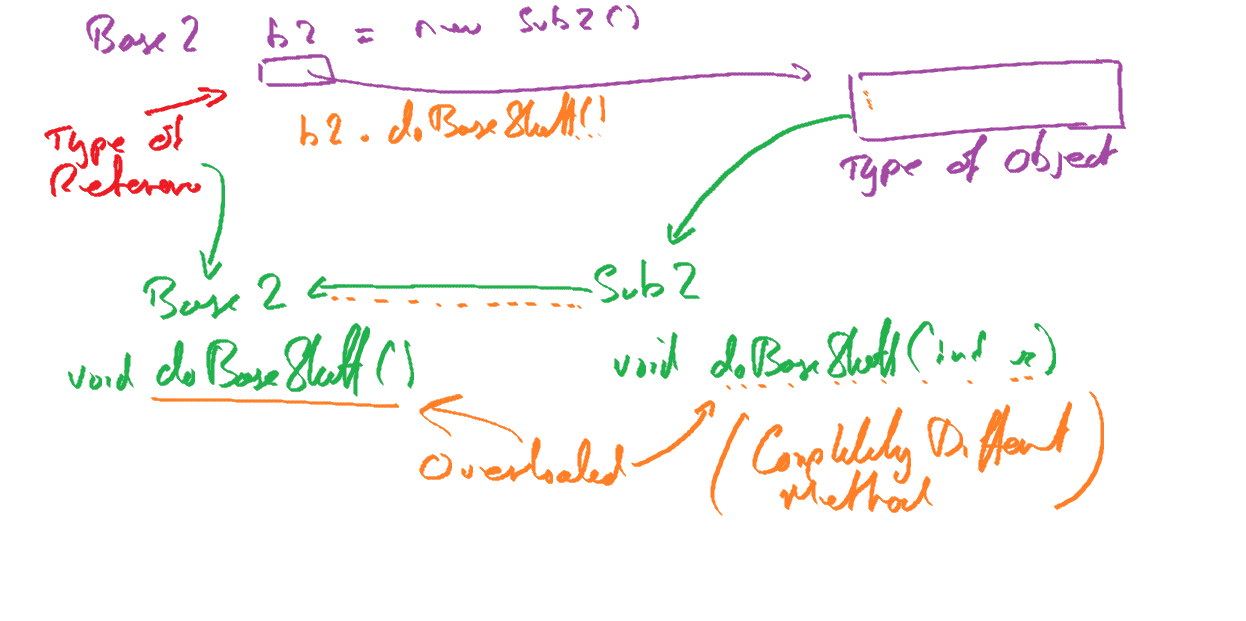 Base 2 b2 = new Sub2()
b2.doBaseStuff()
Type of
Referen
Type of Object
Base 2
Sub2
void doBaseStuff()
void doBaseStuff(int x)
Overloaded
(Completely Different
Method)